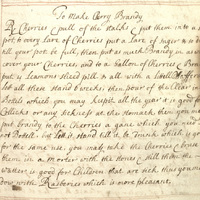 To Make Cherry Brandy
Cherries pull of the stalks put them into a
pot to every lare of Cherries put a lare of suger
till your pot be full, then put as much Brandy in as
cover your Cherries, and to a Gallon of Cherries
put 2 Leamons sliced pill & all with a Little
let all them stand 6 weeks, then pour of the Clear in
Botels which you may keep it all the year & is good for
Collicks or any sickness at the stomach, then you may
put brandy to the Cherries a gane which you need
not Botell, but let it stand till it be Drunk which is good
for the same use, you may take the Cherries
them in a Morter with the stones still them the
water is good for Children that are sick, thus you
dow with Rasberies which is more pleasant,